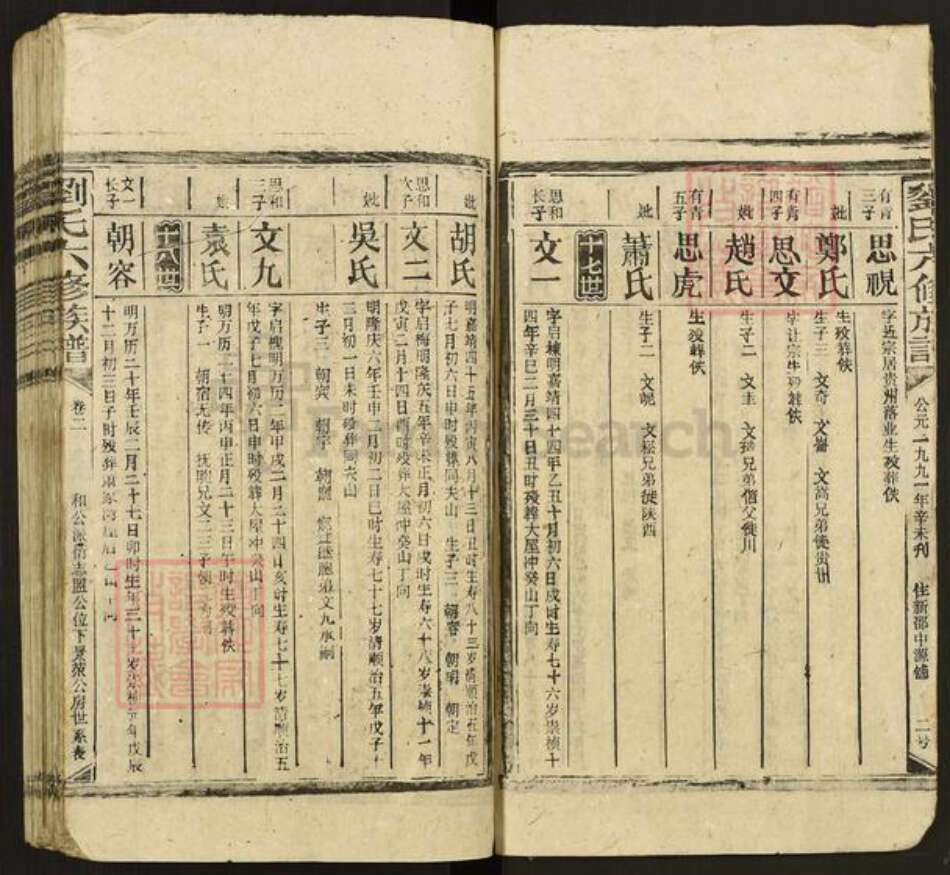 公元一九九一年辛未刊 住新邵中源铺 二号
有青三子
思視
字近宗居贵州落业生殁葬佚
妣
鄭氏
生殁葬佚
生子三 文奇 文斋 文高兄弟徙贵州
有青四子
思文
字让宗生殁葬佚
妣
趙氏
生子二 文圭 文 兄弟偕父徙川
有青五子
思虎
生没葬佚
妣
蕭氏
生子二 文 文松兄弟徙陕西
十七世
思和长子
文一
字启栋明嘉靖四十四年乙丑十月初六日戌时生寿七十六岁崇祯十
四年辛巳二月三十日丑时殁葬大屋冲癸山丁向
妣
胡氏
明嘉靖四十五年丙寅八月十三日丑时生寿八十三岁清顺治五年戊
子七月初六日申时殁葬同夫山 生子三 朝容 朝明 朝定
思和次子
文二
字启梅明隆庆五年辛未正月初六日戌时生寿六十八岁崇祯十一年
戊寅二月十四日酉时殁葬大屋冲癸山丁向
妣
吳氏
明隆庆六年壬申二月初二日巳时生寿七十七岁清顺治五年戊子
三月初一日未时殁葬同夫山
生子三 朝宾 朝宇 朝熙
思和三子
文九
字启槐明万历二年甲戌二月二十四日亥时生寿七十七岁清顺治五
年戊子七月初六日申时殁葬大屋冲癸山丁向
妣
袁氏
明万历二十四年丙申正月二十三日午时生殁葬佚
生子一 朝宿无传 抚熙兄文二三子
十八世
文一长子
朝容
明万历二十年壬辰二月二十七日卯时生年三十七岁崇祯元年戊辰
十二月初三日子时殁葬
劉氏六修族譜
卷二
和公派 志盟公位下 公房世系表